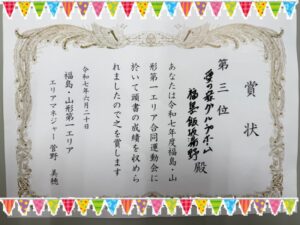 賞状
第三位
愛の家グループホーム
福島飯坂平野 殿
あなたは令和七年度福島・山
形第一エリア合同運動会に
於いて頭書の成績を収めら
れましたので之を賞します
令和七年六月二十日
福島・山形第一エリア
エリアマネジャー 菅野 美穂